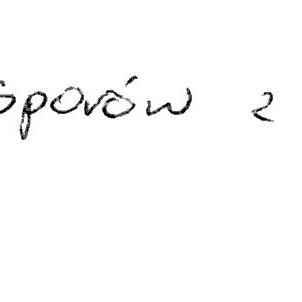 oporów z